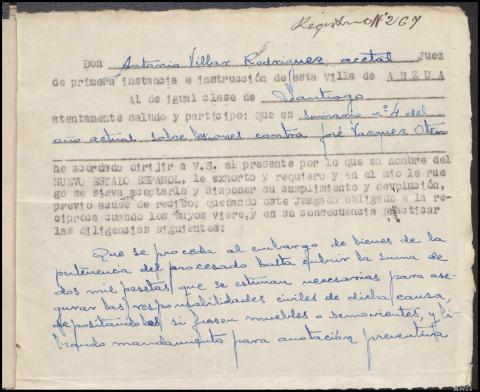 Registro Nº 267
Don Antonio Villar Rodriguez, acctal Juez
de primera instancia e instrucción de esta Villa de ARZUA
Al de igual clase de Santiago
atentamente saludo y participo: que en sumario nº 4 del
año actual sobre lesiones contra José Vazquez Otero
he acordado dirijir a V.S. el presente por lo que en nombre del
NUEVO ESTADO ESPAÑOL, le exhorto y requiero y en el mio le rue
go se sirva aceptarlo y disponer su cumplimiento y devolución,
previo acuse de recibo, quedando este Juzgado obligado a la re-
ciproca cuando los suyos viere, y en su consecuencia practicar
las diligencias siguientes:
Que se proceda al embargo de bienes de la
pertenencia del procesado hasta cubrir la suma de
dos mil pesetas que se estiman necesarias para ase-
gurar las responsabilidades civiles de dicha causa,
depositandolos si fuesen muebles o semovientes, y li-
brando mandamiento para anotación preventiva